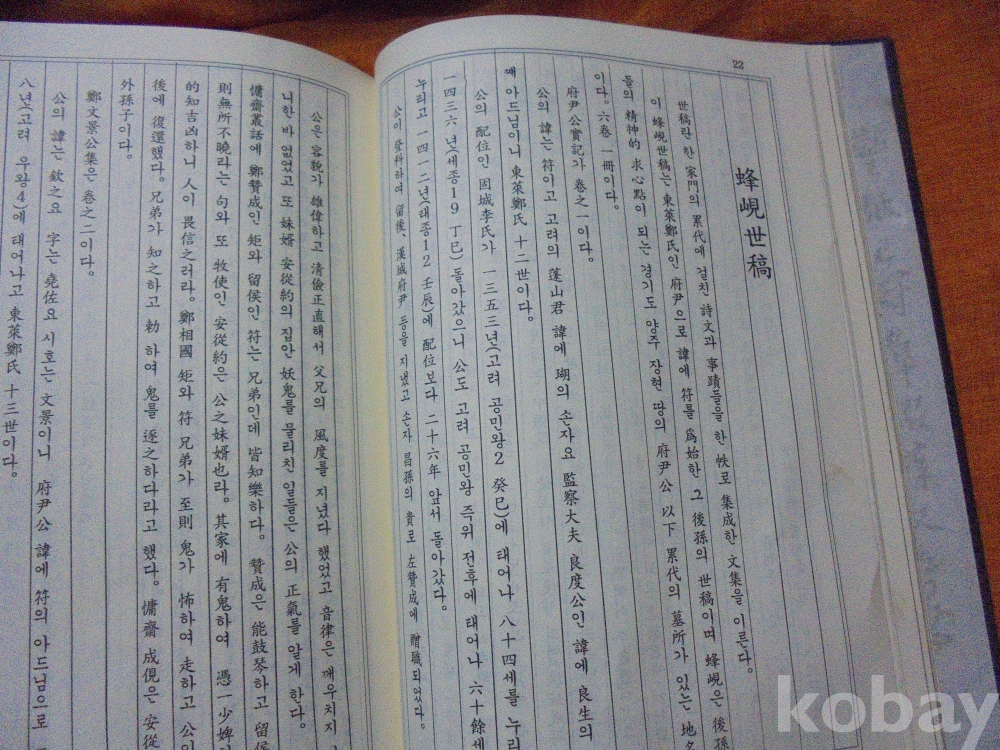 22
蜂峴世稿
世稿란 한 家門의 累代에 걸친 詩文과 事蹟들을 한 帙로 集成한 文集을 이른다.
이 蜂峴世稿는 東萊鄭氏인 府尹으로 諱에 符를 爲始한 그 後孫의 世稿이며 蜂峴은 後孫
들의 精神的 求心點이 되는 경기도 양주 장현 땅의 府尹公 以下 累代의 墓所가 있는 地名
이다. 六卷 一冊이다.
府尹公實記가 卷之一이다.
公의 諱는 符이고 고려의 蓬山君 諱에 瑚의 손자요 監察大夫 良度公인 諱에 良生의
째 아드님이니 東萊鄭氏 十二世이다.
公의 配位인 固城李氏가 一三五三년(고려 공민왕2 癸巳)에 태어나 八十四세를 누리
一四三六년(세종19 丁巳) 돌아갔으니 公도 고려 공민왕 즉위 전후에 태어나 六十餘세
누리고 一四一二년(태종12 壬辰)에 配位보다 二十六年 앞서 돌아갔다.
公이 登科하여 留後, 漢城府尹 등을 지냈고 손자 昌孫의 貴로 左贊成에 贈職되었다.
公은 容貌가 雄偉하고 清儉正直해서 父兄의 風度를 지녔다 했었고 音律은 깨우치지
니한 바 없었고 또 妹婿 安從約의 집안 妖鬼를 물리친 일들은 公의 正氣를 알게 한다.
慵齋叢話에 鄭贊成인 矩와 留侯인 符는 兄弟인데 皆知樂하다. 贊成은 能鼓琴하고 留侯
則無所不曉라는 句와 또 牧使인 安從約은 公之妹婿也라. 其家에 有鬼하여 憑一少婢
的知吉凶하니 人이 畏信之러라. 鄭相國 矩와 符 兄弟가 至則 鬼가 怖하여 走하고 公이
後에 復還했다. 兄弟가 知之하고 勅하여 鬼를 逐之하다라고 했다. 慵齋 成俔은 安從
外孫子이다.
鄭文景公集은 卷之二이다.
公의 諱는 欽之요 字는 堯佐요 시호는 文景이니 府尹公 諱에 符의 아드님으로
八년(고려 우왕4)에 태어나고 東萊鄭氏 十三世이다.
kobay